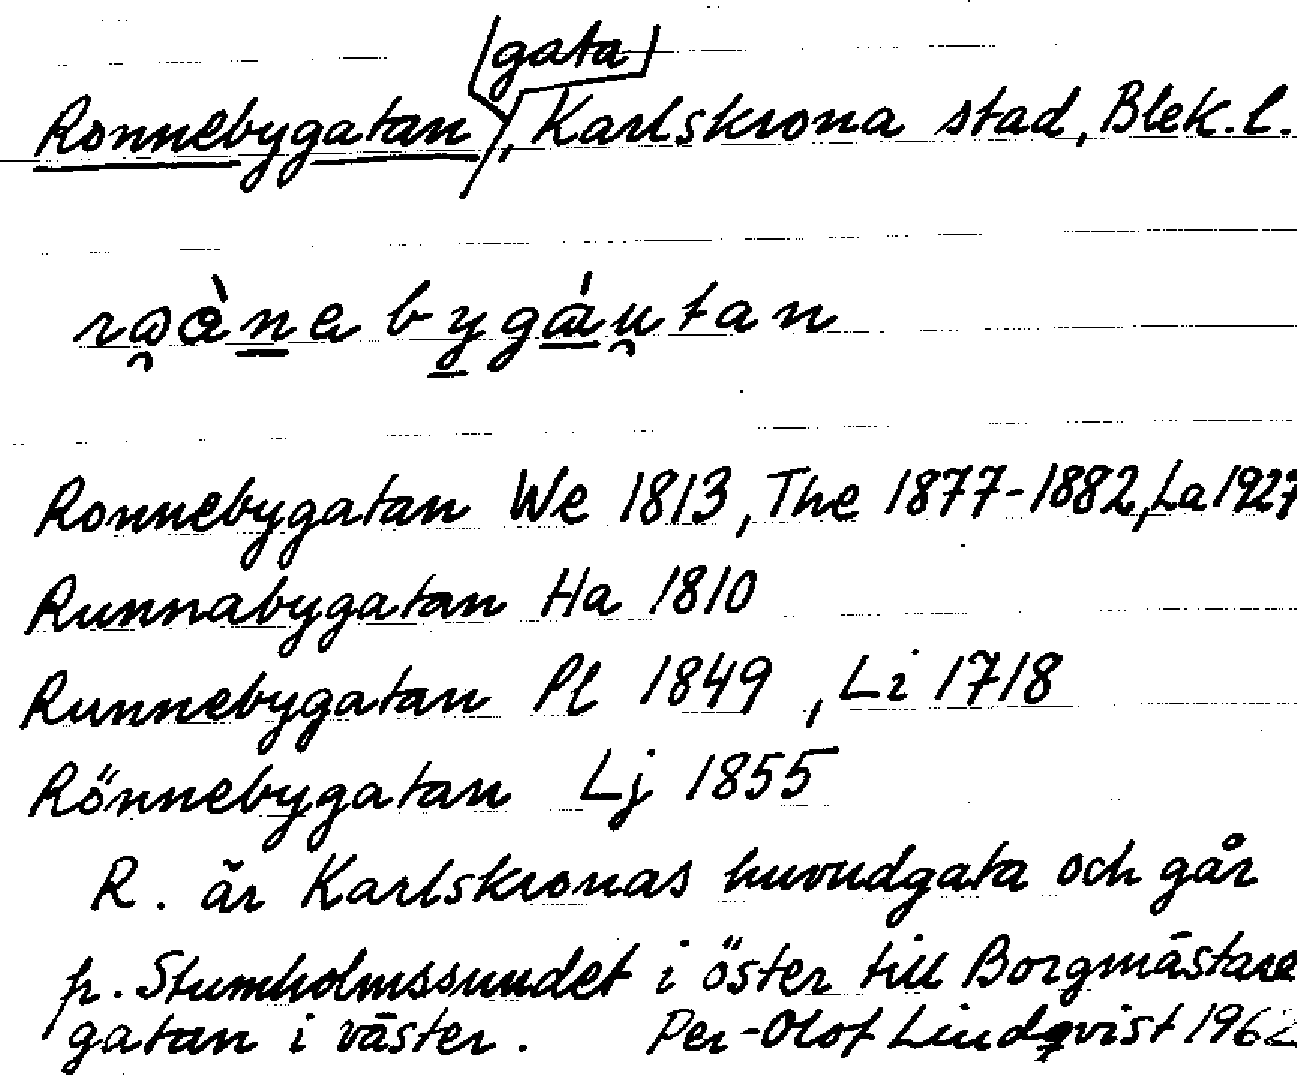 gata
Ronnebygatan, Karlskrona stad, Blek. l.
Ronnebygatan We 1813, The 1877-1882, La 1927
Runnabygatan Ha 1810
Runnebygatan Pl 1849, Li 1718
Rönnebygatan Lj 1855
R. är Karlskronas huvudgata och går
fr. Stumholmssundet i öster till Borgmästare
gatan i väster. Per-Olof Lindqvist 1962